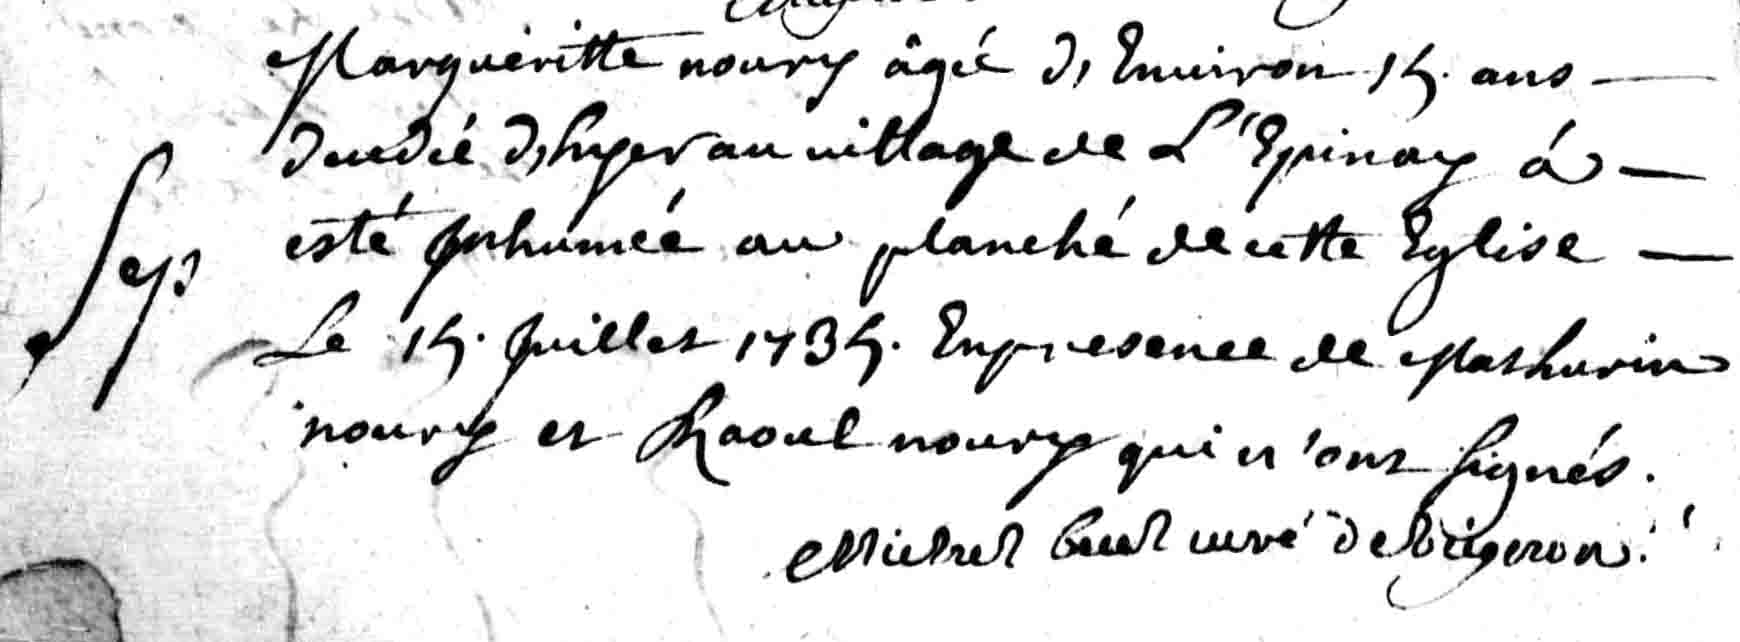 Marguéritte noury âgéé d'Environ 15. ans
decedée d'hyer au village de L'Epinay à
esté Inhuméé au planché de cette Eglise
Sep
Le 15. Juillet 1735. En presence de Mathurin
noury et Raoul noury qui n'ont signés.
Michel curé de